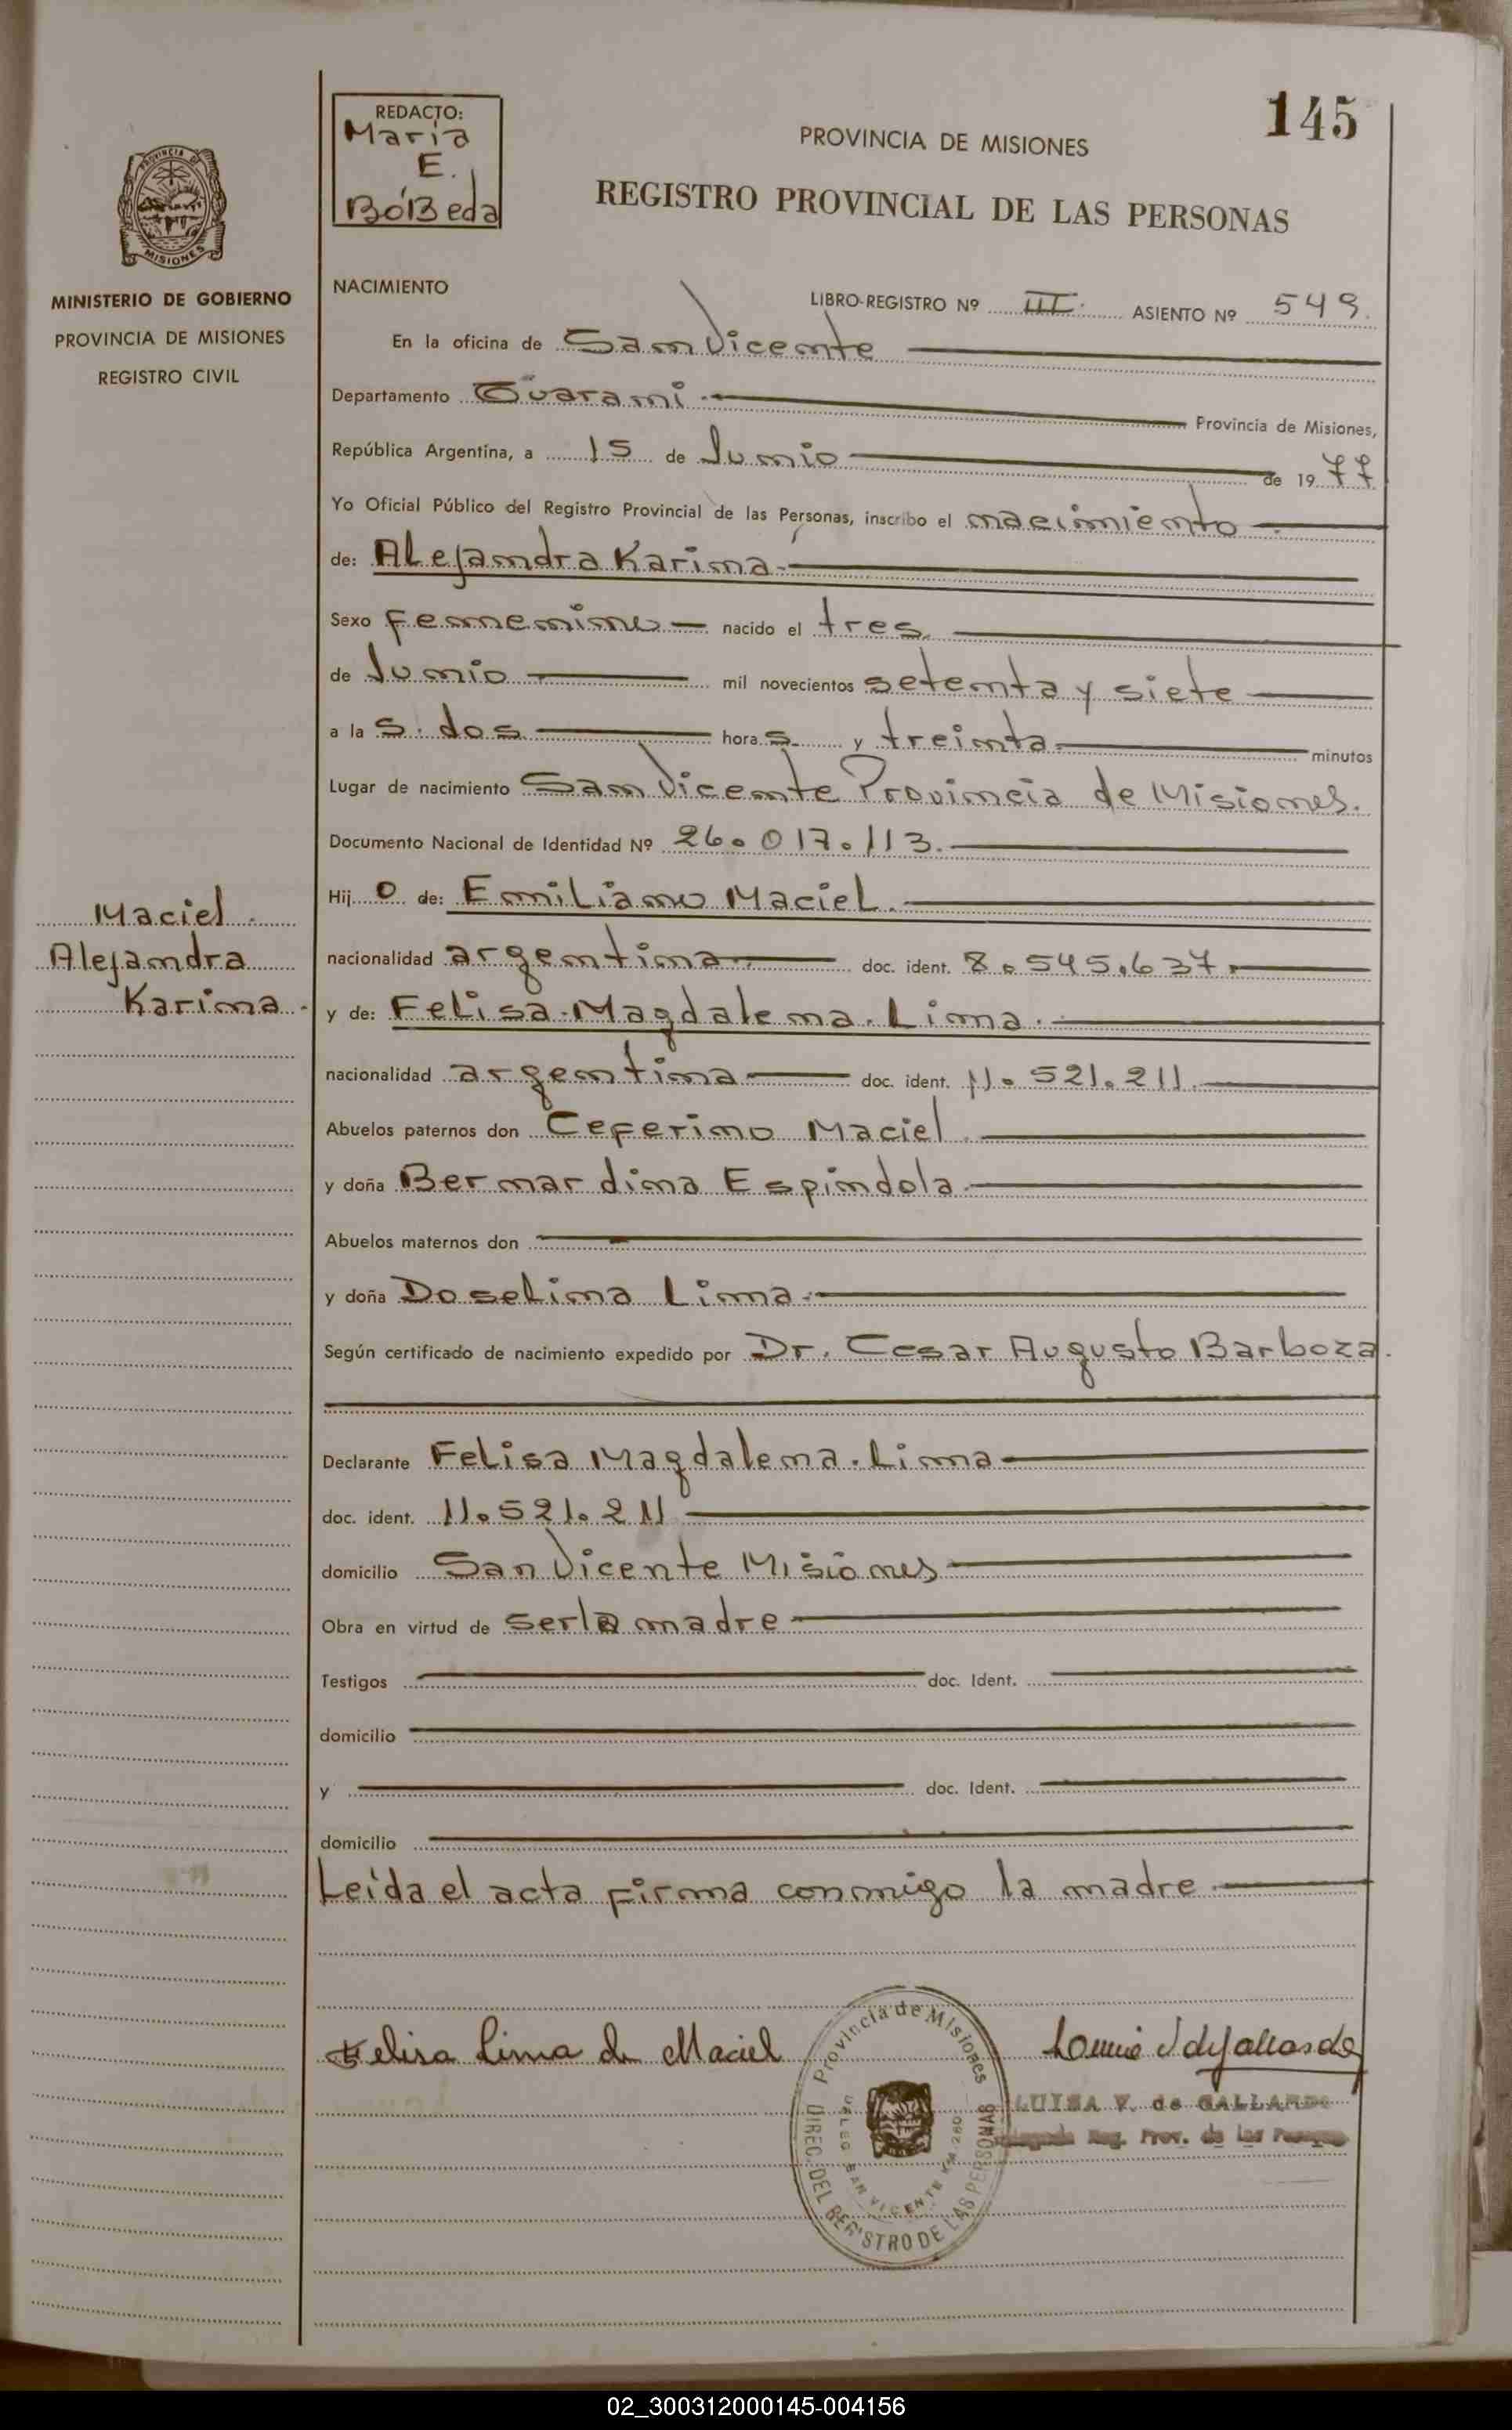 145
REDACTO:
María
E.
BóBeda
PROVINCIA DE MISIONES
REGISTRO PROVINCIAL DE LAS PERSONAS
PROVINCIA DE
MISIONES
MINISTERIO DE GOBIERNO
PROVINCIA DE MISIONES
REGISTRO CIVIL
NACIMIENTO
LIBRO-REGISTRO Nº III. ASIENTO Nº 549.
En la oficina de San Vicente
Departamento Guarani Provincia de Misiones,
República Argentina, a 15 de Junio de 1977
Yo Oficial Público del Registro Provincial de las Personas, inscribo el nacimiento
de: Alejandra Karina
Sexo femenino nacido el tres
de Junio mil novecientos setenta y siete
a la s. dos hora s. y treinta minutos
Lugar de nacimiento San Vicente Provincia de Misiones.
Documento Nacional de Identidad Nº 26.017.113.
Hij o de: Emiliano Maciel.
Maciel
Alejandra
Karina
nacionalidad argentina doc. ident. 8.545.637.
y de: Felisa Magdalena Lima.
nacionalidad argentina doc. ident. 11.521.211.
Abuelos paternos don Ceferino Maciel
y doña Bernardina Espindola
Abuelos maternos don
y doña Doselina Lima
Según certificado de nacimiento expedido por Dr. Cesar Augusto Barboza.
Declarante Felisa Magdalena Lima
doc. ident. 11.521.211
domicilio San Vicente Misiones
Obra en virtud de ser la madre
Testigos doc. Ident.
domicilio
y doc. Ident.
domicilio
Leída el acta firma conmigo la madre
Felisa Lima de Maciel
Provincia de Misiones
DIREC. DEL REGISTRO DE LAS PERSONAS
SAN VICENTE KM. 260
LUISA V. de GALLARDO
Reg. Prov. de las
02_300312000145-004156